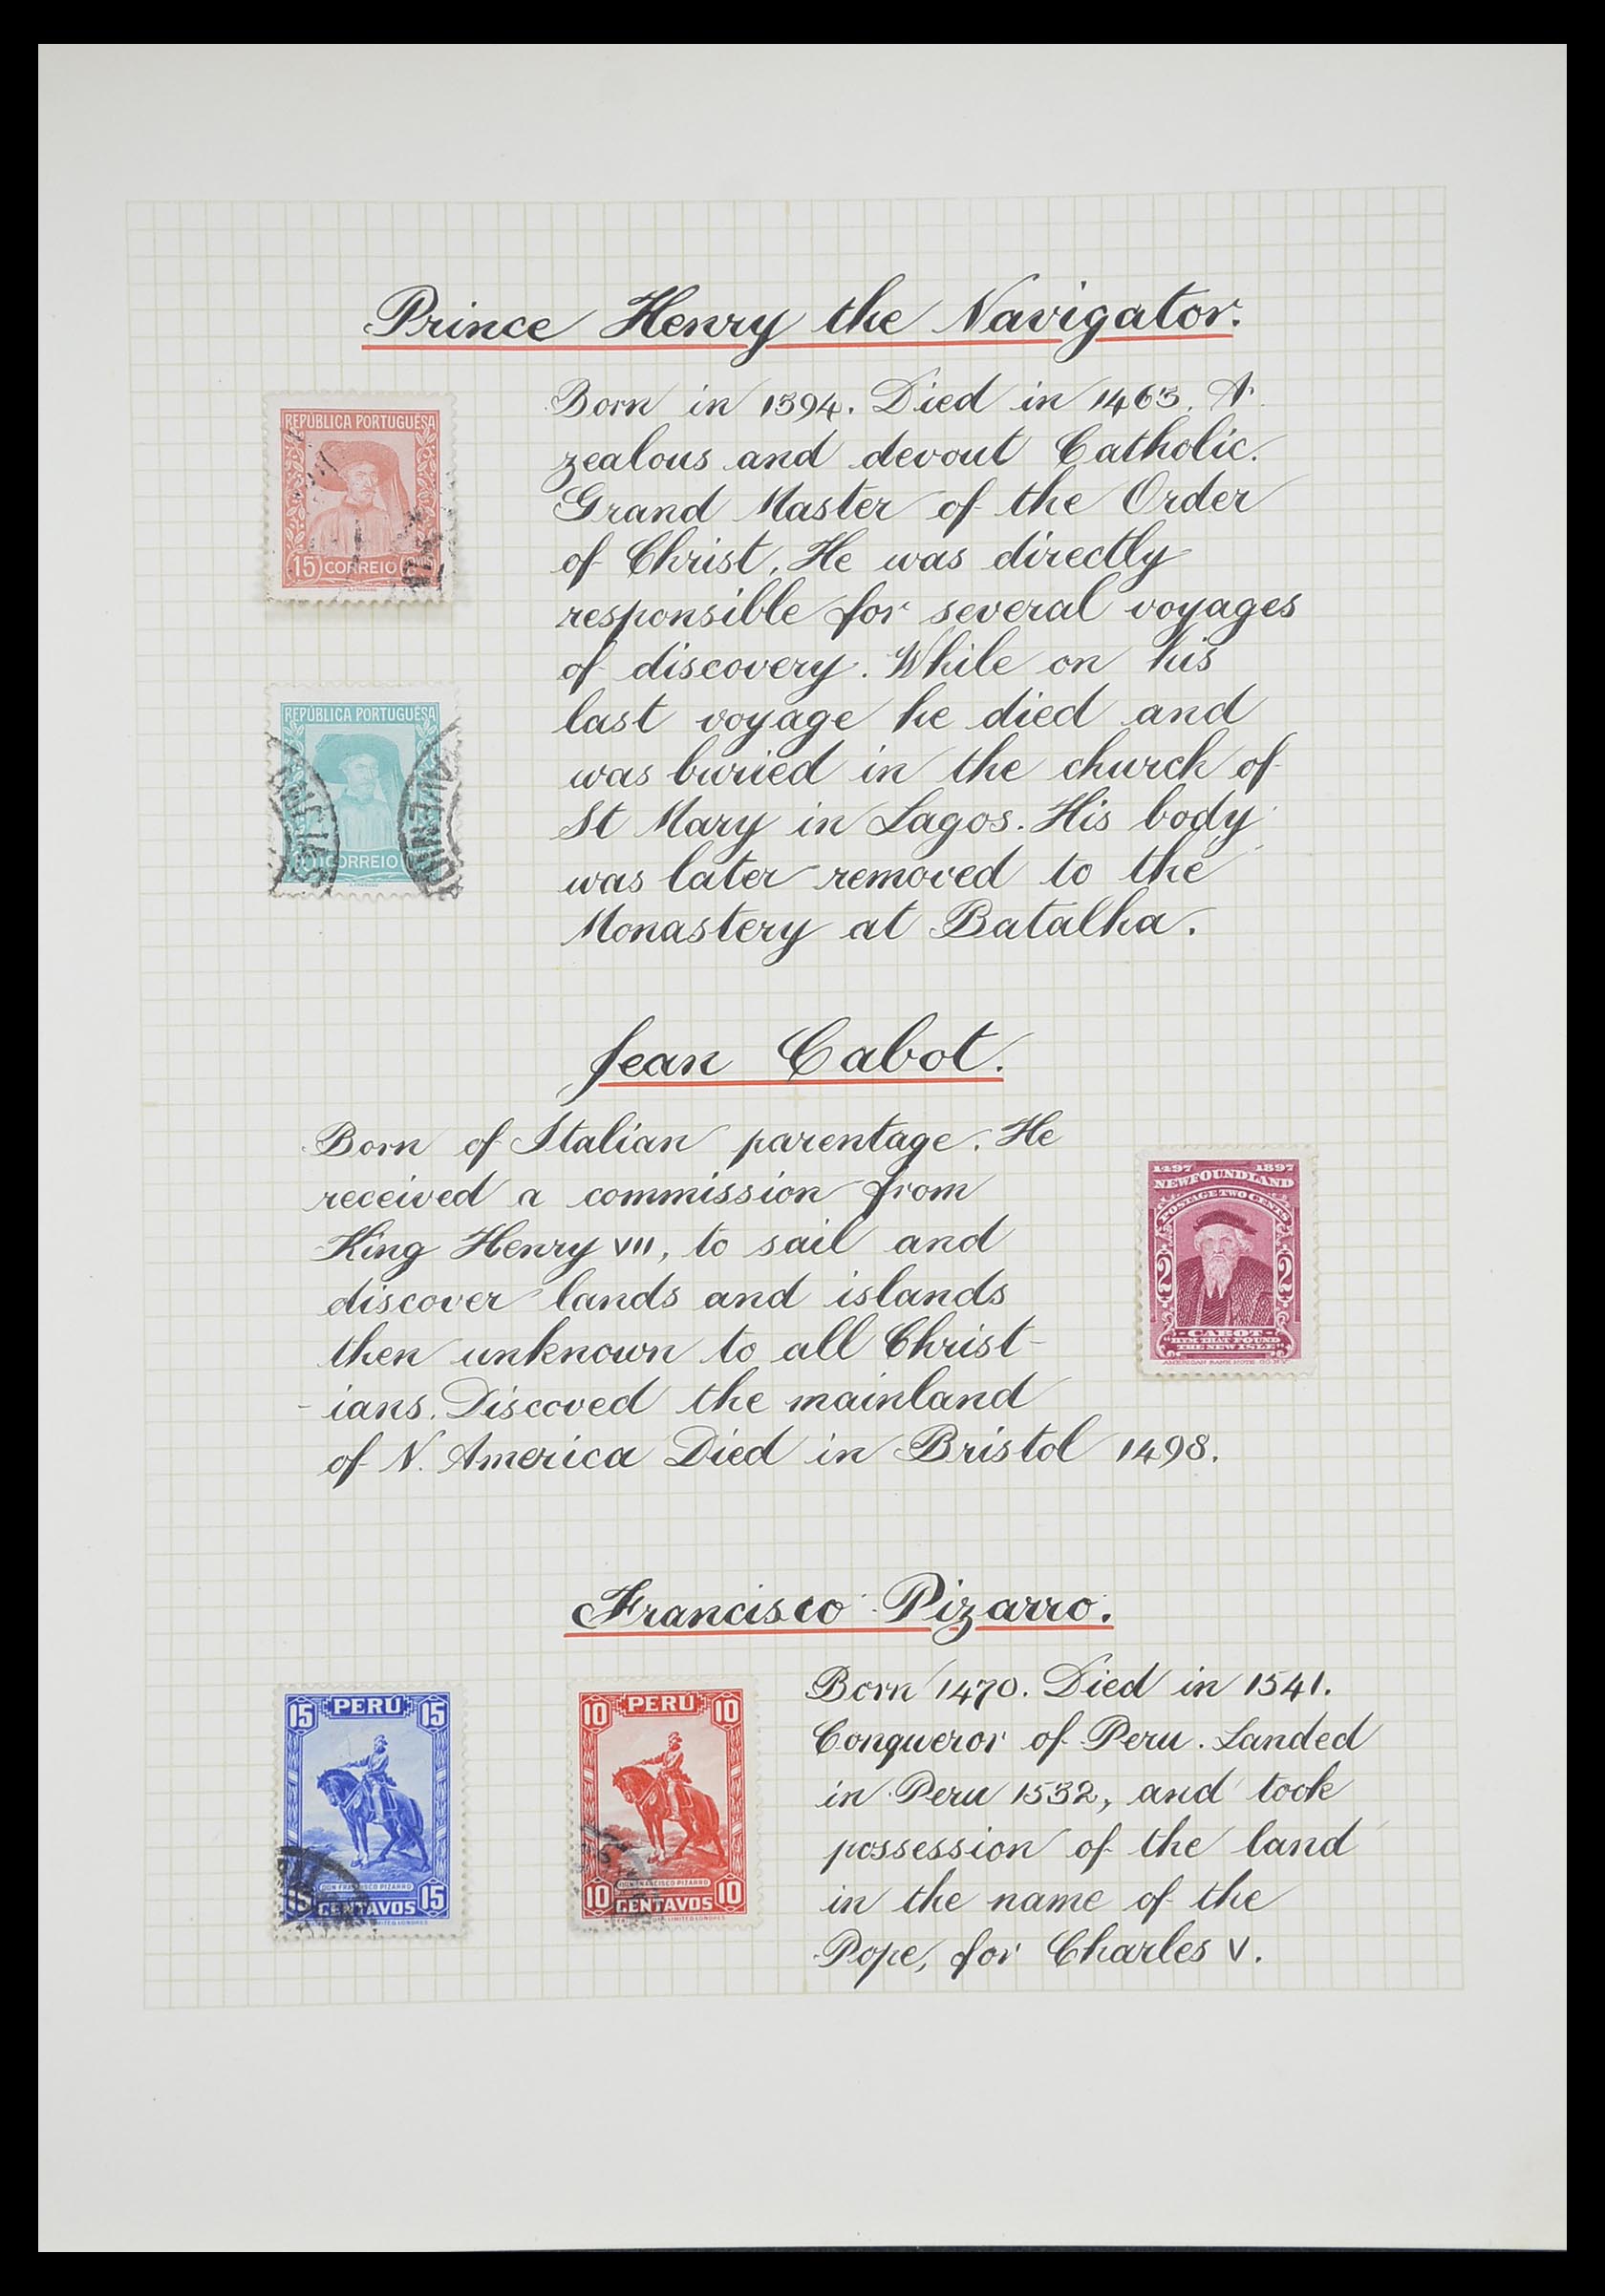 Prince Henry the Navigator.
REPÚBLICA PORTUGUESA
15 CORREIO
Born in 1394. Died in 1463. A
zealous and devout Catholic.
Grand Master of the Order
of Christ. He was directly
responsible for several voyages
of discovery. While on his
last voyage he died and
was buried in the church of
St Mary in Lagos. His body
was later removed to the
Monastery at Batalha.
REPÚBLICA PORTUGUESA
CORREIO
Jean Cabot.
Born of Italian parentage. He
received a commission from
King Henry VII, to sail and
discover lands and islands
then unknown to all Christ-
-ians. Discoved the mainland
of N. America Died in Bristol 1498.
1497 1897
NEWFOUNDLAND
POSTAGE TWO CENTS
2 2
-CABOT-
"HYM THAT FOUND
THE NEW ISLE"
AMERICAN BANK NOTE CO. N.Y.
Francisco Pizarro.
15 PERÚ 15
DON FRANCISCO PIZARRO
15 CENTAVOS 15
10 PERÚ 10
DON FRANCISCO PIZARRO
10 CENTAVOS 10
Born 1470. Died in 1541.
Conqueror of Peru. Landed
in Peru 1532, and took
possession of the land
in the name of the
Pope, for Charles V.